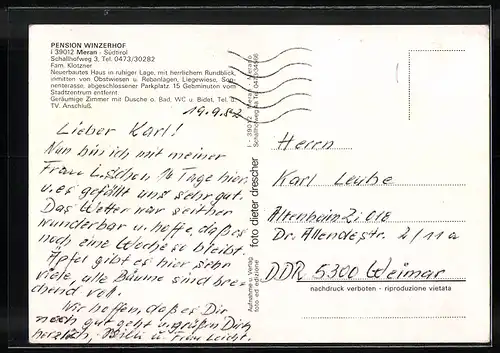 PENSION WINZERHOF
I 39012 Meran - Südtirol
Schallhofweg 3, Tel. 0473/30282
Fam. Klotzner
Neuerbautes Haus in ruhiger Lage, mit herrlichem Rundblick,
inmitten von Obstwiesen u. Rebanlagen, Liegewiese, Son-
nenterasse, abgeschlossener Parkplatz. 15 Gehminuten vom
Stadtzentrum entfernt.
Geräumige Zimmer mit Dusche o. Bad, WC u. Bidet, Tel. u.
TV. Anschluß.
19.9.87
Lieber Karl!
Nun bin ich mit meiner
Frau schon 14 Tage hier
u. es gefällt uns sehr gut.
Das Wetter war seither
wunderbar u. hoffe, daß es
noch eine Woche so bleibt.
Äpfel gibt es hier sehr
viele, alle Bäume sind bre-
chend voll.
Wir hoffen, daß es Dir
noch gut geht u. grüßen Dich
herzlich, u. Frau
Aufnahme u. Verlag
foto ed edizione
foto dieter drescher
I - 39012 Meran - merano
Herrn
Karl Leube
Altenheim Zi 018
Dr. Allendestr. 2/11a
DDR 5300 Weimar
nachdruck verboten - riproduzione vietata